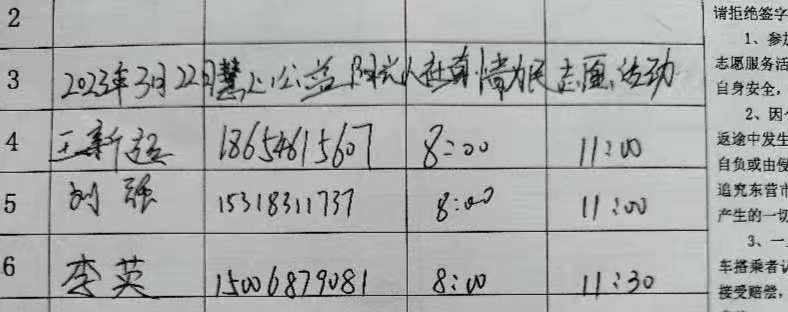 2
3 2023年3月22日慧心公益 阳光人社 真情为民 志愿活动
4 王新远 18654615607 8:00 11:00
5 刘强 15318311737 8:00 11:00
6 李英 15006879081 8:00 11:30
请拒绝签字
1、参加
志愿服务活
自身安全，
2、因
返途中发生
自负或由侵
追究东营市
产生的一切
3、一
车搭乘者
接受赔偿，